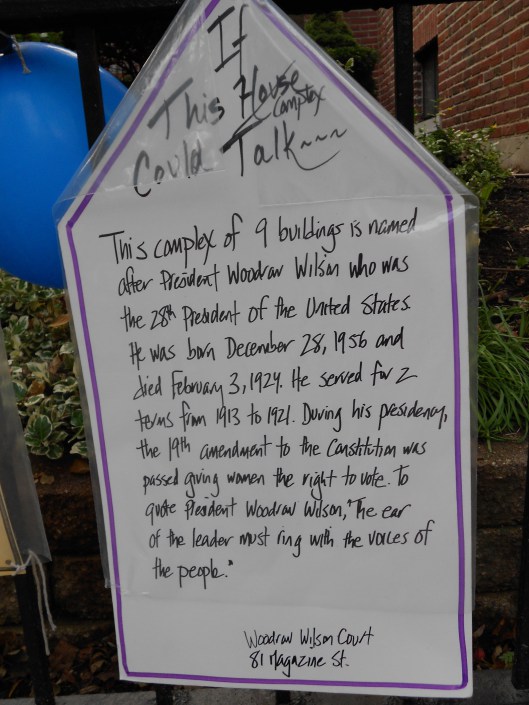 If
This House
complex
Could Talk~~~
This complex of 9 buildings is named
after President Woodrow Wilson who was
the 28th President of the United States.
He was born December 28, 1956 and
died February 3, 1924. He served for 2
terms from 1913 to 1921. During his presidency,
the 19th amendment to the Constitution was
passed giving women the right to vote. To
quote President Woodrow Wilson, "The ear
of the leader must ring with the voices of
the people."
Woodrow Wilson Court
81 Magazine St.